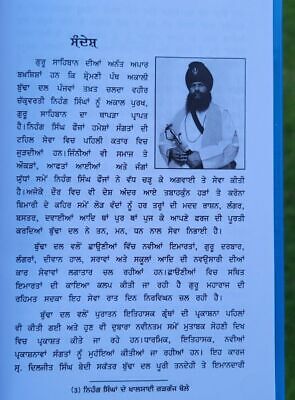 ਸੰਦੇਸ਼
ਗੁਰੂ ਸਾਹਿਬਾਨ ਦੀਆਂ ਅਨੰਤ ਅਪਾਰ
ਬਖ਼ਸ਼ਿਸ਼ਾਂ ਹਨ ਕਿ ਸ਼੍ਰੋਮਣੀ ਪੰਥ ਅਕਾਲੀ
ਬੁੱਢਾ ਦਲ ਪੰਜਵਾਂ ਤਖ਼ਤ ਚਲਦਾ ਵਹੀਰ
ਚੱਕ੍ਰਵਰਤੀ ਨਿਹੰਗ ਸਿੰਘਾਂ ਨੂੰ ਅਕਾਲ ਪੁਰਖ,
ਗੁਰੂ ਸਾਹਿਬਾਨ ਦਾ ਥਾਪੜਾ ਪ੍ਰਾਪਤ
ਹੈ।ਨਿਹੰਗ ਸਿੰਘ ਫੌਜਾਂ ਹਮੇਸ਼ਾਂ ਸੰਗਤਾਂ ਦੀ
ਟਹਿਲ ਸੇਵਾ ਵਿਚ ਪਹਿਲੀ ਕਤਾਰ ਵਿਚ
ਜੁੜਦੀਆਂ ਹਨ।ਜਿੰਨੀਆਂ ਵੀ ਸਮਾਜ ਤੇ
ਔਕੜਾਂ, ਆਫਤਾਂ ਆਈਆਂ ਅਤੇ ਜੰਗਾਂ
ਯੁੱਧਾਂ ਸਮੇਂ ਨਿਹੰਗ ਸਿੰਘ ਫੌਜਾਂ ਨੇ ਵੱਧ ਚੜ੍ਹ ਕੇ ਅਗਵਾਈ ਤੇ ਸੇਵਾ ਕੀਤੀ
ਹੈ।ਅਜੋਕੇ ਦੌਰ ਵਿਚ ਵੀ ਦੇਸ਼ ਅੰਦਰ ਆਏ ਤਬਾਹਕੁੰਨ ਹੜਾਂ ਤੇ ਕਰੋਨਾ
ਬਿਮਾਰੀ ਦੇ ਕਹਿਰ ਸਮੇਂ ਲੋੜ ਵੰਦਾਂ ਨੂੰ ਹਰ ਤਰ੍ਹਾਂ ਦੀ ਮਦਦ ਰਾਸ਼ਨ, ਲੰਗਰ,
ਬਸਤਰ, ਦਵਾਈਆਂ ਆਦਿ ਥਾਂ ਪੁਰ ਥਾਂ ਪੁਜ ਕੇ ਆਪਣੇ ਫਰਜ਼ ਦੀ ਪੂਰਤੀ
ਕਰਦਿਆਂ ਬੁੱਢਾ ਦਲ ਨੇ ਤਨ, ਮਨ, ਧਨ ਨਾਲ ਸੇਵਾ ਨਿਭਾਈ ਹੈ।
ਬੁੱਢਾ ਦਲ ਵਲੋਂ ਛਾਉਣੀਆਂ ਵਿੱਚ ਨਵੀਆਂ ਇਮਾਰਤਾਂ, ਗੁਰੂ ਦਰਬਾਰ,
ਲੰਗਰਾਂ, ਦੀਵਾਨ ਹਾਲ, ਸਰਾਵਾਂ ਅਤੇ ਸਕੂਲਾਂ ਆਦਿ ਦੀ ਨਵਉਸਾਰੀ ਦੀਆਂ
ਕਾਰ ਸੇਵਾਵਾਂ ਲਗਾਤਾਰ ਚਲ ਰਹੀਆਂ ਹਨ।ਛਾਉਣੀਆਂ ਵਿਚ ਸਥਿਤ
ਇਮਾਰਤਾਂ ਦੀ ਕਾਇਆ ਕਲਪ ਕੀਤੀ ਜਾ ਰਹੀ ਹੈ ਗੁਰੂ ਮਹਾਰਾਜ ਦੀ
ਰਹਿਮਤ ਸਦਕਾ ਇਹ ਸੇਵਾ ਰਾਤ ਦਿਨ ਨਿਰਵਿਘਨ ਚਲ ਰਹੀ ਹੈ।
ਬੁੱਢਾ ਦਲ ਵਲੋਂ ਪੁਰਾਤਨ ਇਤਿਹਾਸਕ ਗ੍ਰੰਥਾਂ ਦੀ ਪ੍ਰਕਾਸ਼ਨਾ ਪਹਿਲਾਂ
ਵੀ ਕੀਤੀ ਗਈ ਅਤੇ ਹੁਣ ਵੀ ਦੁਬਾਰਾ ਨਵੀਨਤਮ ਸਮੇਂ ਮੁਤਾਬਕ ਸੋਹਣੀ ਦਿਖ
ਵਿਚ ਪ੍ਰਕਾਸ਼ਤ ਕੀਤੇ ਜਾ ਰਹੇ ਹਨ।ਧਾਰਮਿਕ, ਇਤਿਹਾਸਕ, ਨਵੀਆਂ
ਪ੍ਰਕਾਸ਼ਨਾਵਾਂ ਸੰਗਤਾਂ ਨੂੰ ਮੁਹੱਈਆ ਕੀਤੀਆਂ ਜਾ ਰਹੀਆਂ ਹਨ। ਇਹ ਕਾਰਜ
ਸ੍ਰ. ਦਿਲਜੀਤ ਸਿੰਘ ਬੇਦੀ ਸਕੱਤਰ ਬੁੱਢਾ ਦਲ ਪੂਰੀ ਤਨਦੇਹੀ ਤੇ ਇਮਾਨਦਾਰੀ
(3) ਨਿਹੰਗ ਸਿੰਘਾਂ ਦੇ ਖ਼ਾਲਸਾਈ ਗੜਗੱਜ ਬੋਲੇ